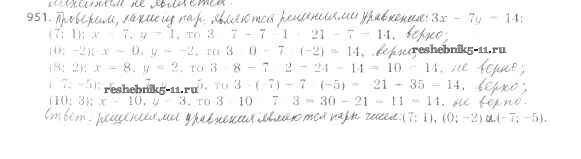 951. Проверим, какие из пар являются решениями уравнения: 3x - 7y = 14:
(7; 1): x = 7, y = 1, то 3 · 7 - 7 · 1 = 21 - 7 = 14, верно;
(0; -2): x = 0, y = -2, то 3 · 0 - 7 · (-2) = 14, верно;
reshebnik5-11.ru
(8; 2): x = 8, y = 2, то 3 · 8 - 7 · 2 = 24 - 14 = 10 ≠ 14, не верно;
(-7; -5): x = -7, y = -5, то 3 · (-7) - 7 · (-5) = -21 + 35 = 14, верно;
reshebnik5-11.ru
(10; 3): x = 10, y = 3, то 3 · 10 - 7 · 3 = 30 - 21 = 11 ≠ 14, не верно.
Ответ: решениями уравнения являются пары чисел: (7; 1), (0; -2) и (-7; -5).